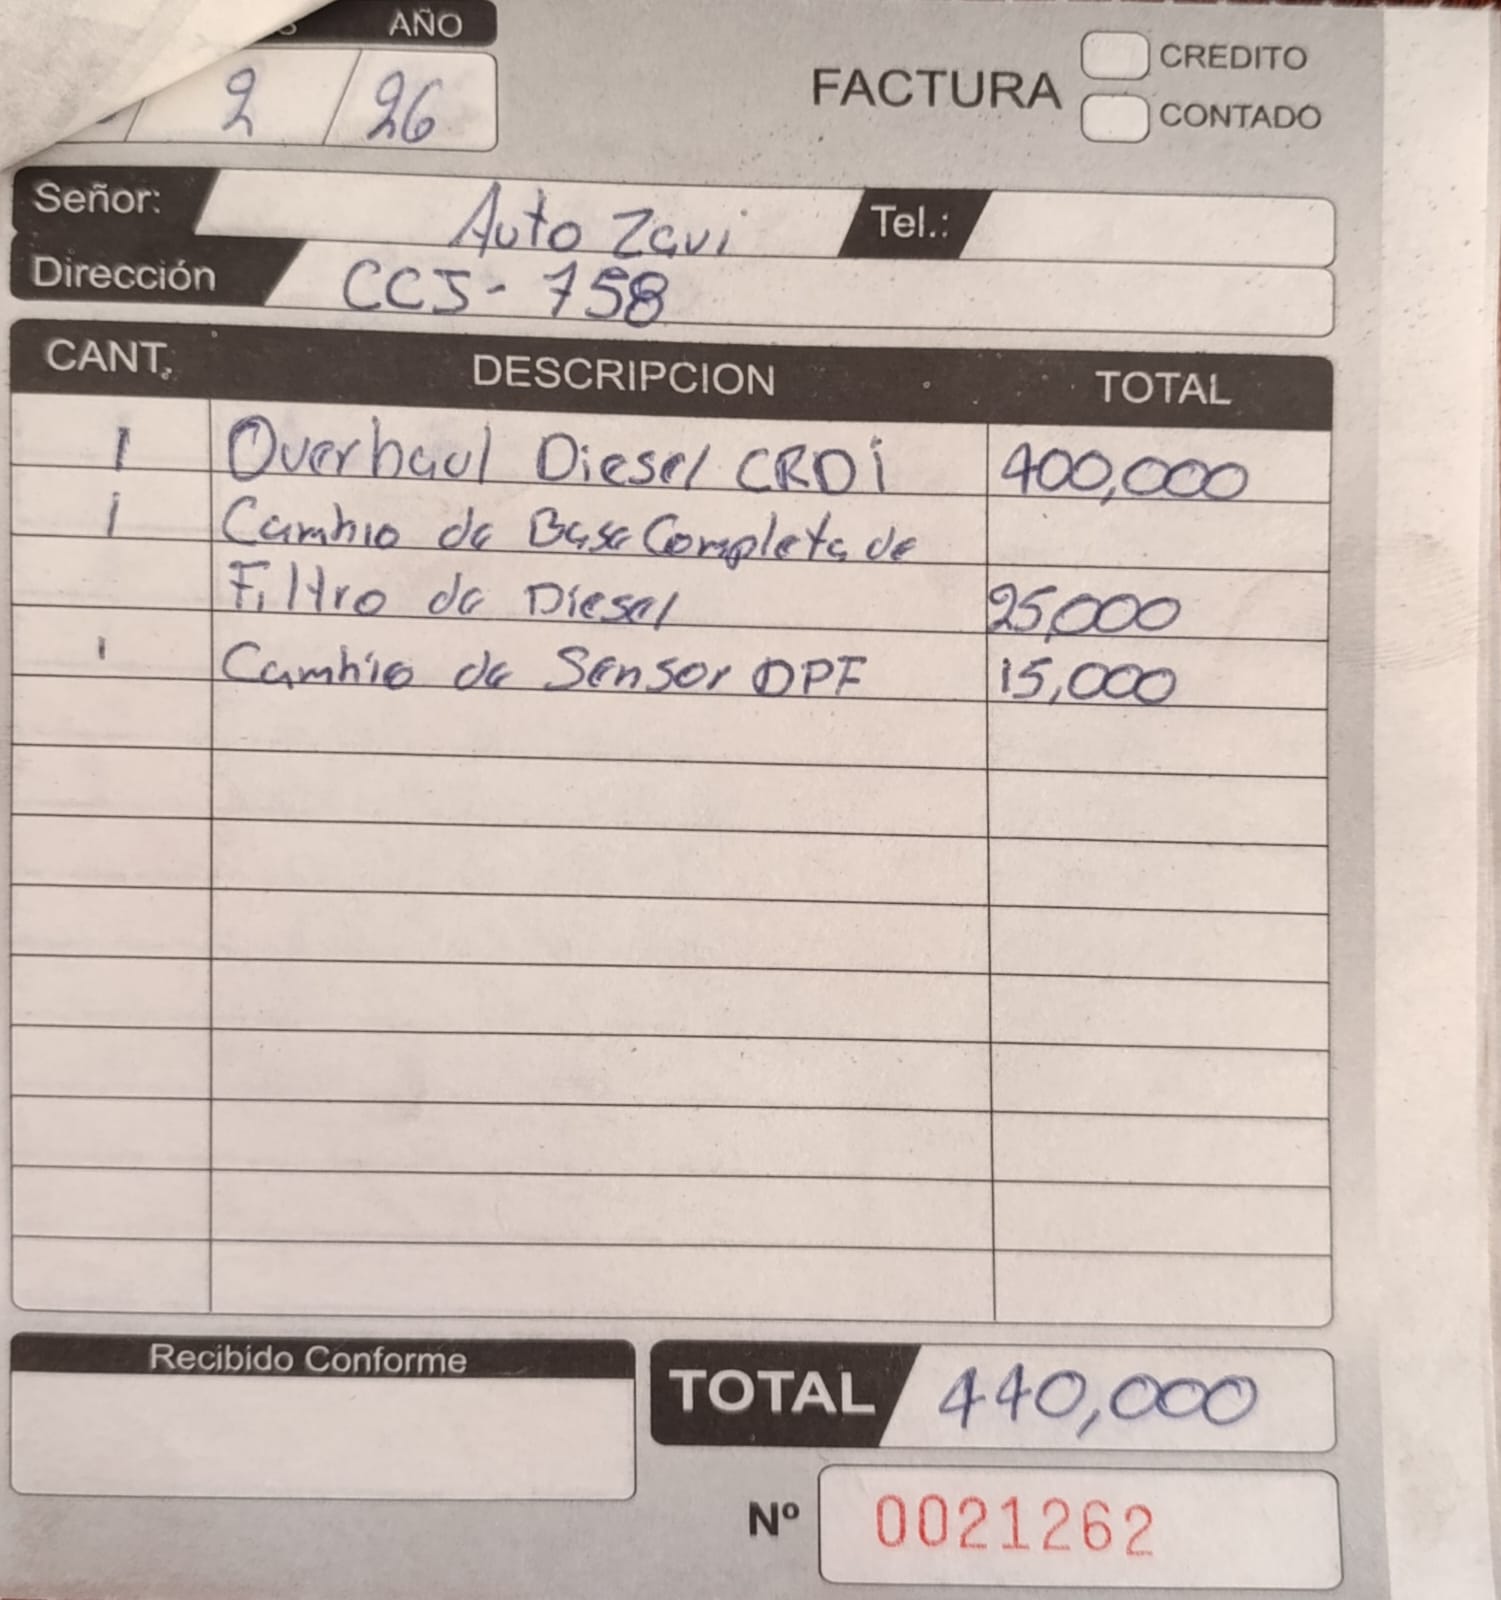 AÑO
2 / 26
FACTURA
CREDITO
CONTADO
Señor: Auto Zavi Tel.:
Dirección CCJ-758
CANT. DESCRIPCION TOTAL
1 Overhaul Diesel CRDi 400,000
1 Cambio de Base Completa de
Filtro de Diesel 25,000
1 Cambio de Sensor DPF 15,000
Recibido Conforme
TOTAL 440,000
Nº 0021262